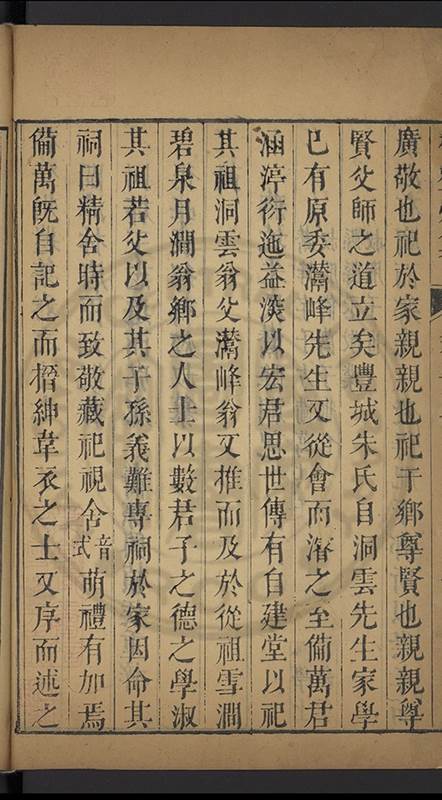 廣敬也祀於家親親也祀于鄉尊賢也親親尊
賢父師之道立矣豐城朱氏自洞雲先生家學
已有原委灊峰先生又從會而濬之至僃萬君
涵渟衍迤益深以宏君思世傳有自建堂以祀
其祖洞雲翁父灊峰翁又推而及於從祖雪澗
碧泉月澗翁鄉之人士以數君子之德之學淑
其祖若父以及其子孫義難專祠於家因命其
祠曰精舍時而致敬藏祀視舍音式萌禮有加焉
僃萬旣自記之而搢紳韋衣之士又序而述之